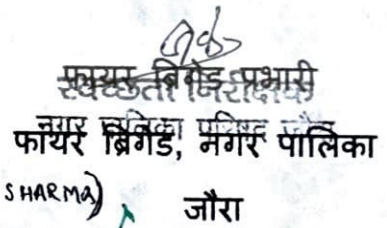 फायर ब्रिगेड प्रभारी
स्वच्छता निरीक्षक
नगर पालिका परिषद जौरा
फायर ब्रिगेड, नगर पालिका
SHARMA)
जौरा